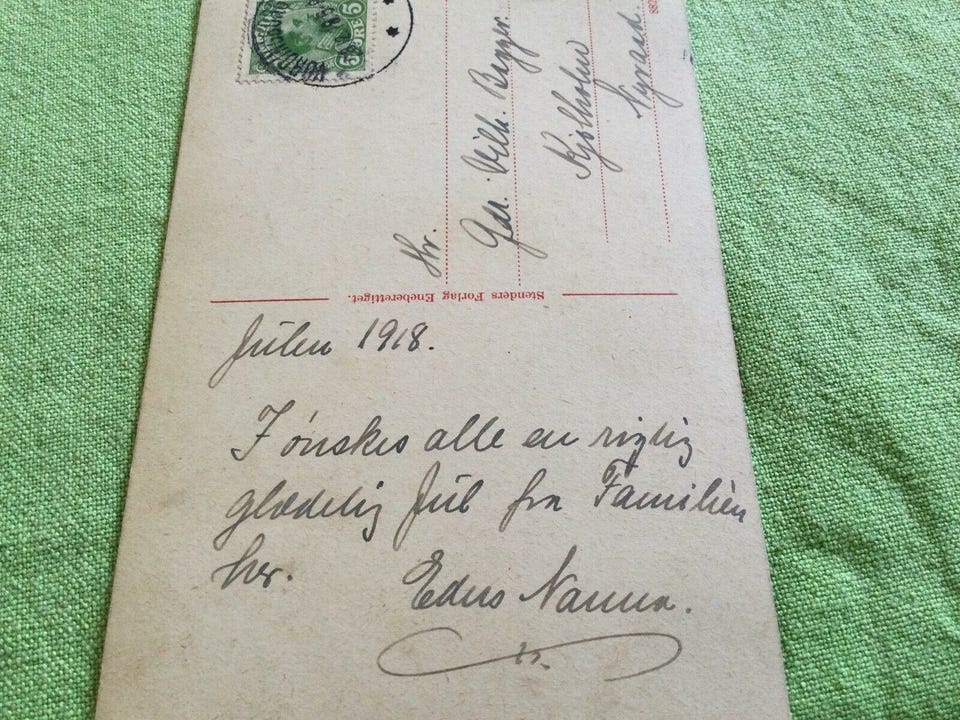 5 ØRE 5
VORDINGBORG
Hr.
Gdr. Vilh. Bagger.
Kjølholm
Nyraad
Stenders Forlag Eneberettiget.
Julen 1918.
I ønskes alle en rigtig
glædelig Jul fra Familien
her. Eders Nanna.